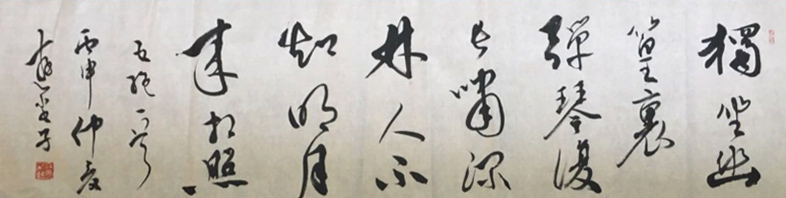 獨坐幽
篁裏
彈琴復
長嘯深
林人不
知明月
来相照
五絕一首
丙申仲夏